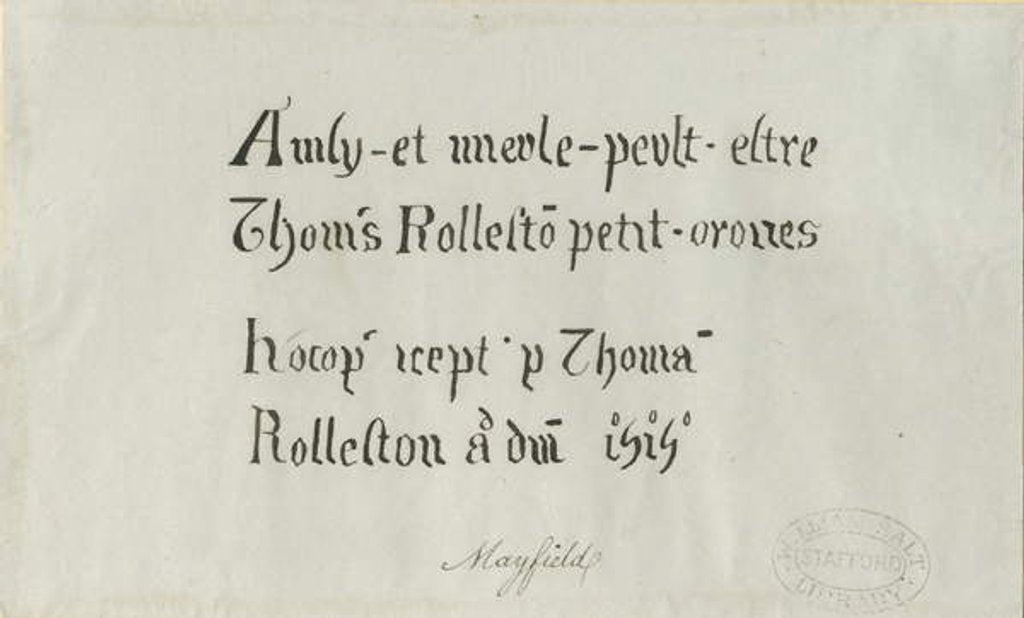 Ainſy-et mevle-pevlt· eſtre
Thoms Rolleſtō petit·orones
hocop' icept · p Thoma
Rolleſton ad dm̄ 1515
Mayfield
WILLIAM SALT
STAFFORD
LIBRARY